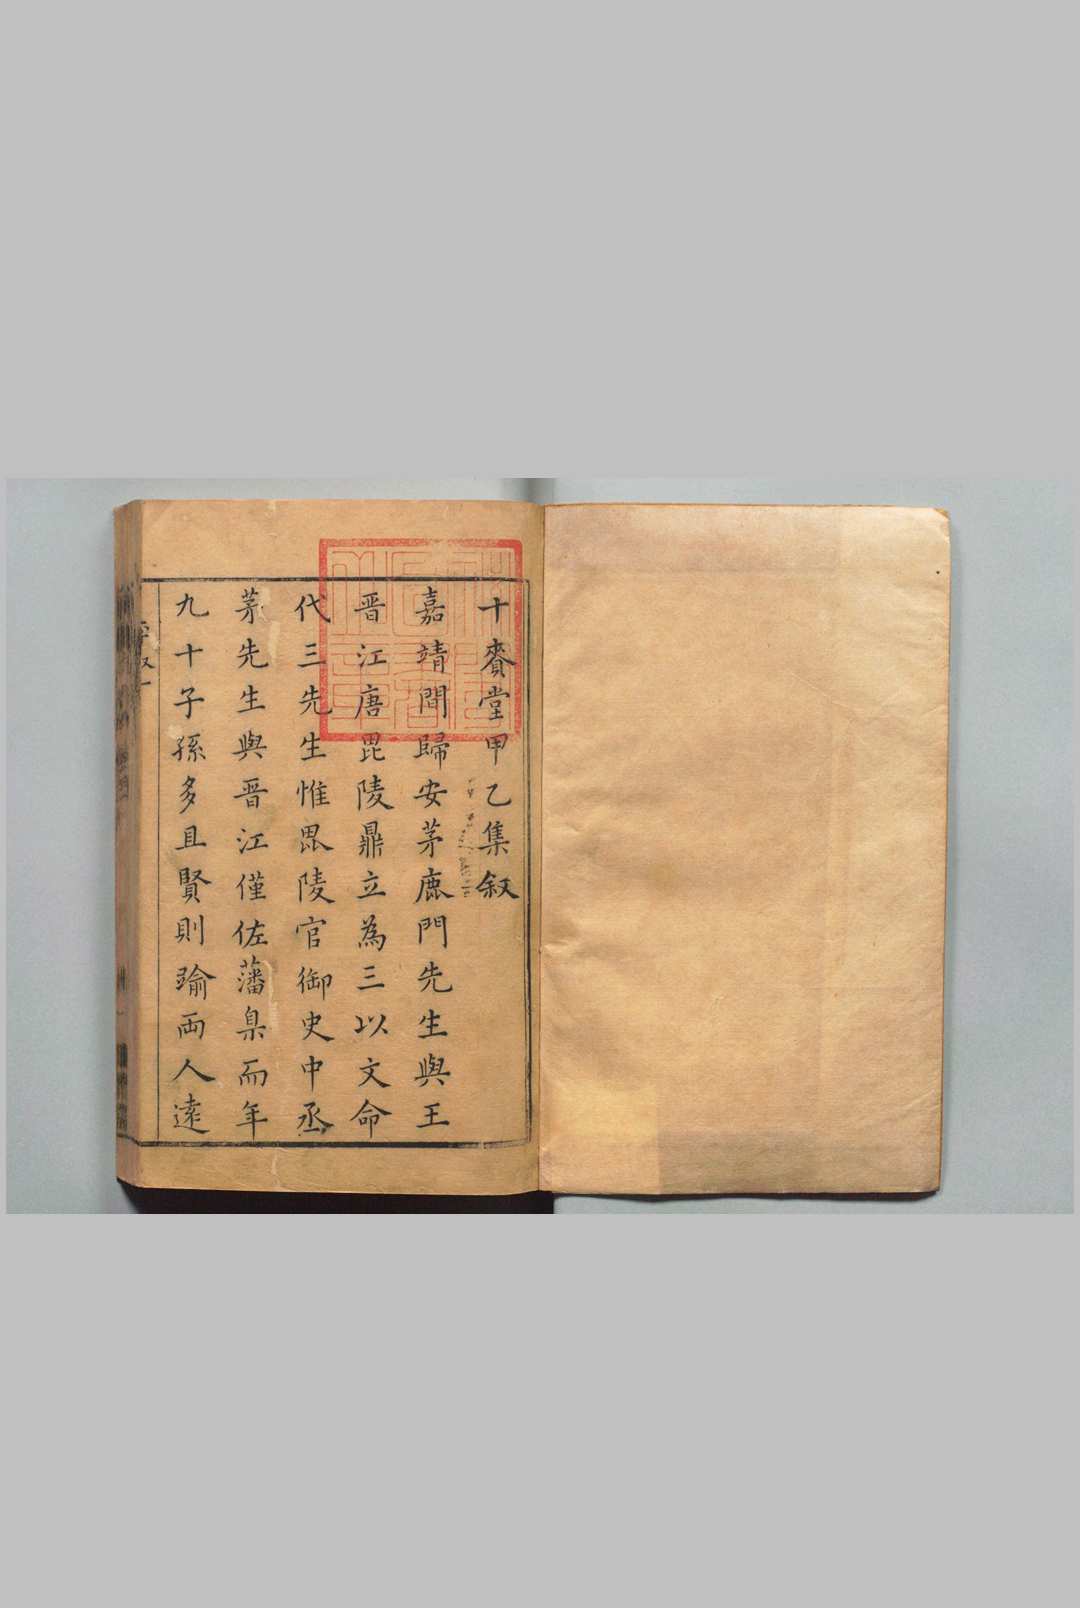 十賚堂甲乙集叙
嘉靖間歸安茅鹿門先生與王
晋江唐毘陵鼎立為三以文命
代三先生惟毘陵官御史中丞
茅先生與晋江僅佐藩臬而年
九十子孫多且賢則踰兩人遠